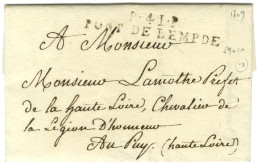 1809
P. 41. P.
PONT DE LEMPDE
A Monsieur
Monsieur Lamothe Préfet
de la haute Loire, Chevalier de
la Légion D'honneur
Au Puy (haute Loire)